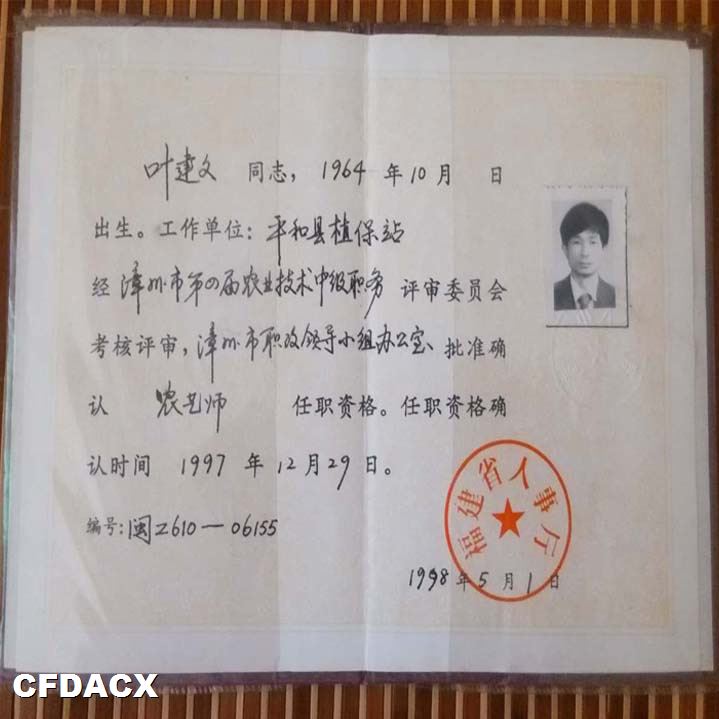 叶建文 同志，1964 年 10 月 日
出生。工作单位：平和县植保站
经 漳州市第四届农业技术中级职务 评审委员会
考核评审，漳州市职改领导小组办公室、批准确
认 农艺师 任职资格。任职资格确
认时间 1997 年 12 月 29 日。
编号：闽Z610—06155
福建省人事厅
1998 年 5 月 1 日
CFDACX